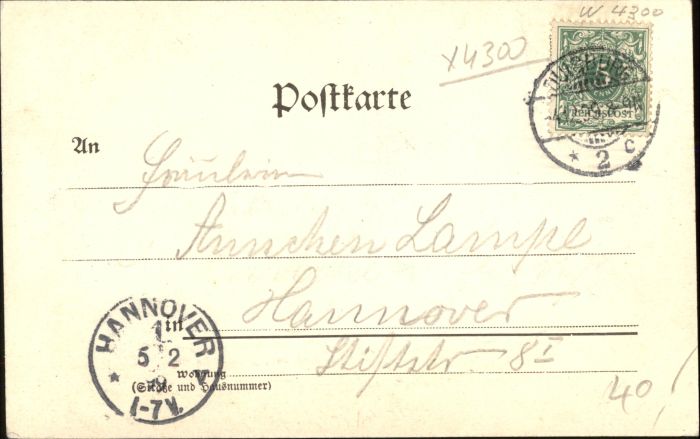 W 4300
x4300
DUISBURG
REICHSPOST
* 2 c
Postkarte
An
Fräulein
Annchen Lampe
Hannover
in
Stiftstr. 8 I
HANNOVER
1
5 2
* V
1-7V.
Wohnung
(Straße und Hausnummer)
40